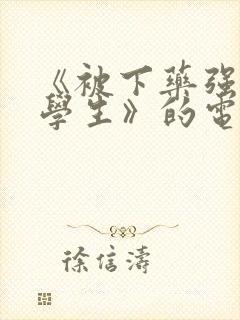 《被下藥強
學生》的電
徐信濤